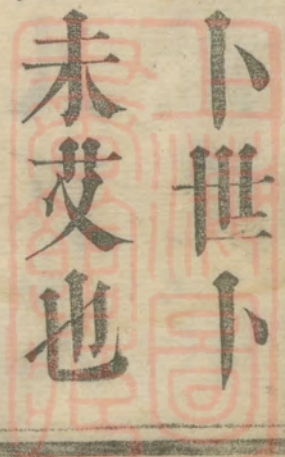 卜世卜
未艾也